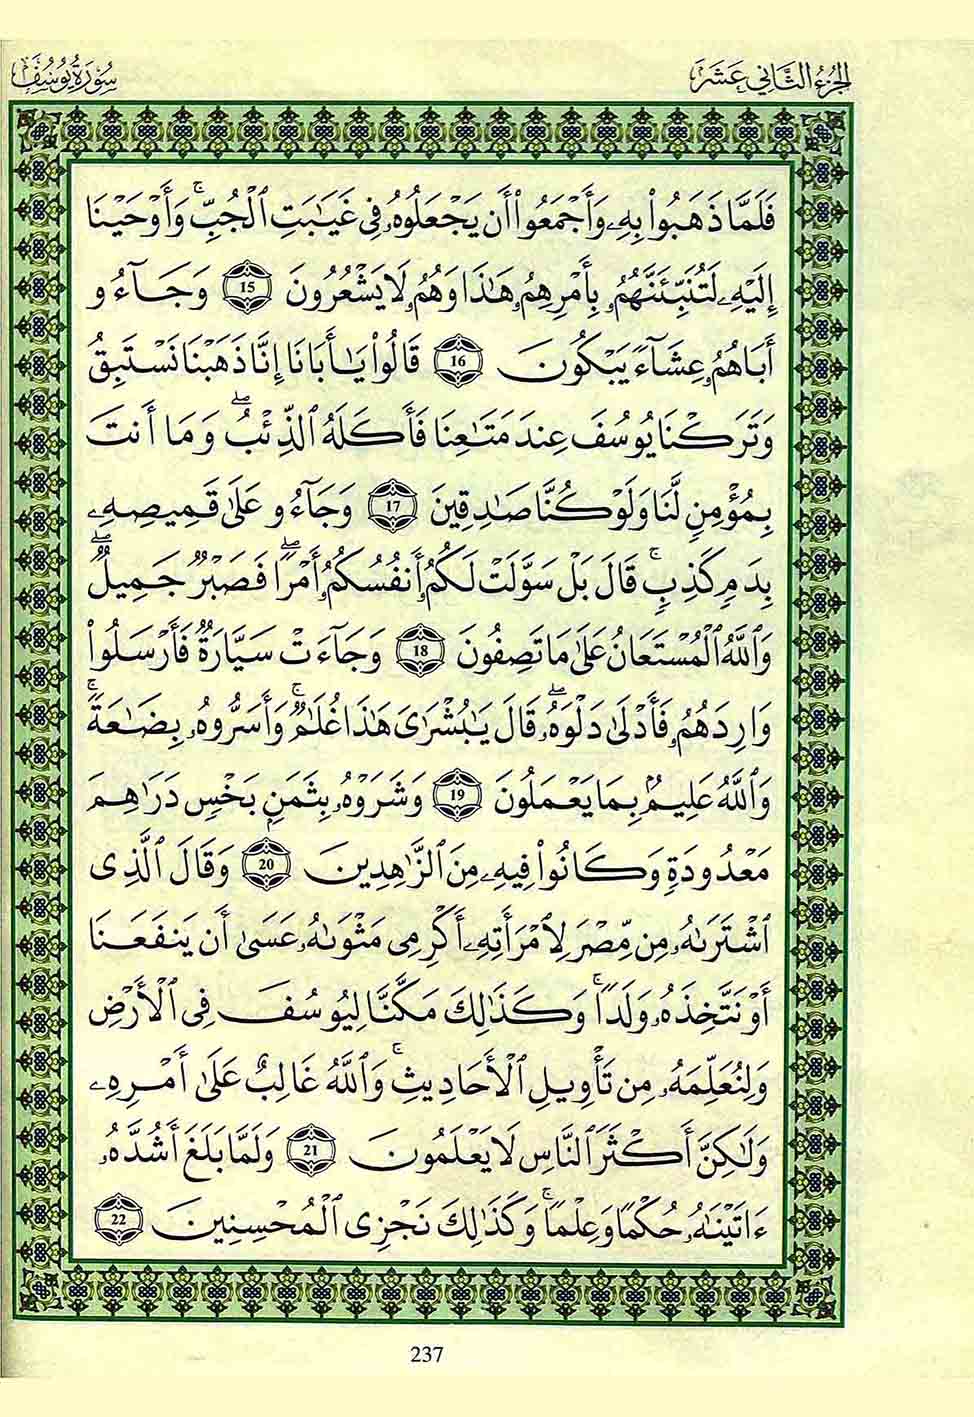 الجزء الثاني عشر
سورة يوسف
فَلَمَّا ذَهَبُوا۟ بِهِۦ وَأَجْمَعُوٓا۟ أَن يَجْعَلُوهُۥ فِى غَيَـٰبَتِ ٱلْجُبِّ ۚ وَأَوْحَيْنَآ
إِلَيْهِۦ لَتُنَبِّئَنَّهُمُۥ بِأَمْرِهِمُۥ هَـٰذَا وَهُمُۥ لَا يَشْعُرُونَ 15 وَجَآءُو
أَبَاهُمُۥ عِشَآءً يَبْكُونَ 16 قَالُوا۟ يَـٰٓأَبَانَآ إِنَّا ذَهَبْنَا نَسْتَبِقُ
وَتَرَكْنَا يُوسُفَ عِندَ مَتَـٰعِنَا فَأَكَلَهُ ٱلذِّئْبُ ۖ وَمَآ أَنتَ
بِمُؤْمِنٍ لَّنَا وَلَوْ كُنَّا صَـٰدِقِينَ 17 وَجَآءُو عَلَىٰ قَمِيصِهِۦ
بِدَمٍ كَذِبٍ ۚ قَالَ بَلْ سَوَّلَتْ لَكُمُۥٓ أَنفُسُكُمُۥٓ أَمْرًا ۖ فَصَبْرٌ جَمِيلٌ ۖ
وَٱللَّهُ ٱلْمُسْتَعَانُ عَلَىٰ مَا تَصِفُونَ 18 وَجَآءَتْ سَيَّارَةٌ فَأَرْسَلُوا۟
وَارِدَهُمُۥ فَأَدْلَىٰ دَلْوَهُۥ ۖ قَالَ يَـٰبُشْرَاىَ هَـٰذَا غُلَـٰمٌ ۚ وَأَسَرُّوهُۥ بِضَـٰعَةً ۚ
وَٱللَّهُ عَلِيمٌۢ بِمَا يَعْمَلُونَ 19 وَشَرَوْهُۥ بِثَمَنٍۭ بَخْسٍ دَرَٰهِمَ
مَعْدُودَةٍ وَكَانُوا۟ فِيهِۦ مِنَ ٱلزَّٰهِدِينَ 20 وَقَالَ ٱلَّذِى
ٱشْتَرَىٰهُۥ مِن مِّصْرَ لِٱمْرَأَتِهِۦٓ أَكْرِمِى مَثْوَىٰهُۥ عَسَىٰٓ أَن يَنفَعَنَآ
أَوْ نَتَّخِذَهُۥ وَلَدًا ۚ وَكَذَٰلِكَ مَكَّنَّا لِيُوسُفَ فِى ٱلْأَرْضِ
وَلِنُعَلِّمَهُۥ مِن تَأْوِيلِ ٱلْأَحَادِيثِ ۚ وَٱللَّهُ غَالِبٌ عَلَىٰٓ أَمْرِهِۦ
وَلَـٰكِنَّ أَكْثَرَ ٱلنَّاسِ لَا يَعْلَمُونَ 21 وَلَمَّا بَلَغَ أَشُدَّهُۥٓ
ءَاتَيْنَـٰهُۥ حُكْمًا وَعِلْمًا ۚ وَكَذَٰلِكَ نَجْزِى ٱلْمُحْسِنِينَ 22
237